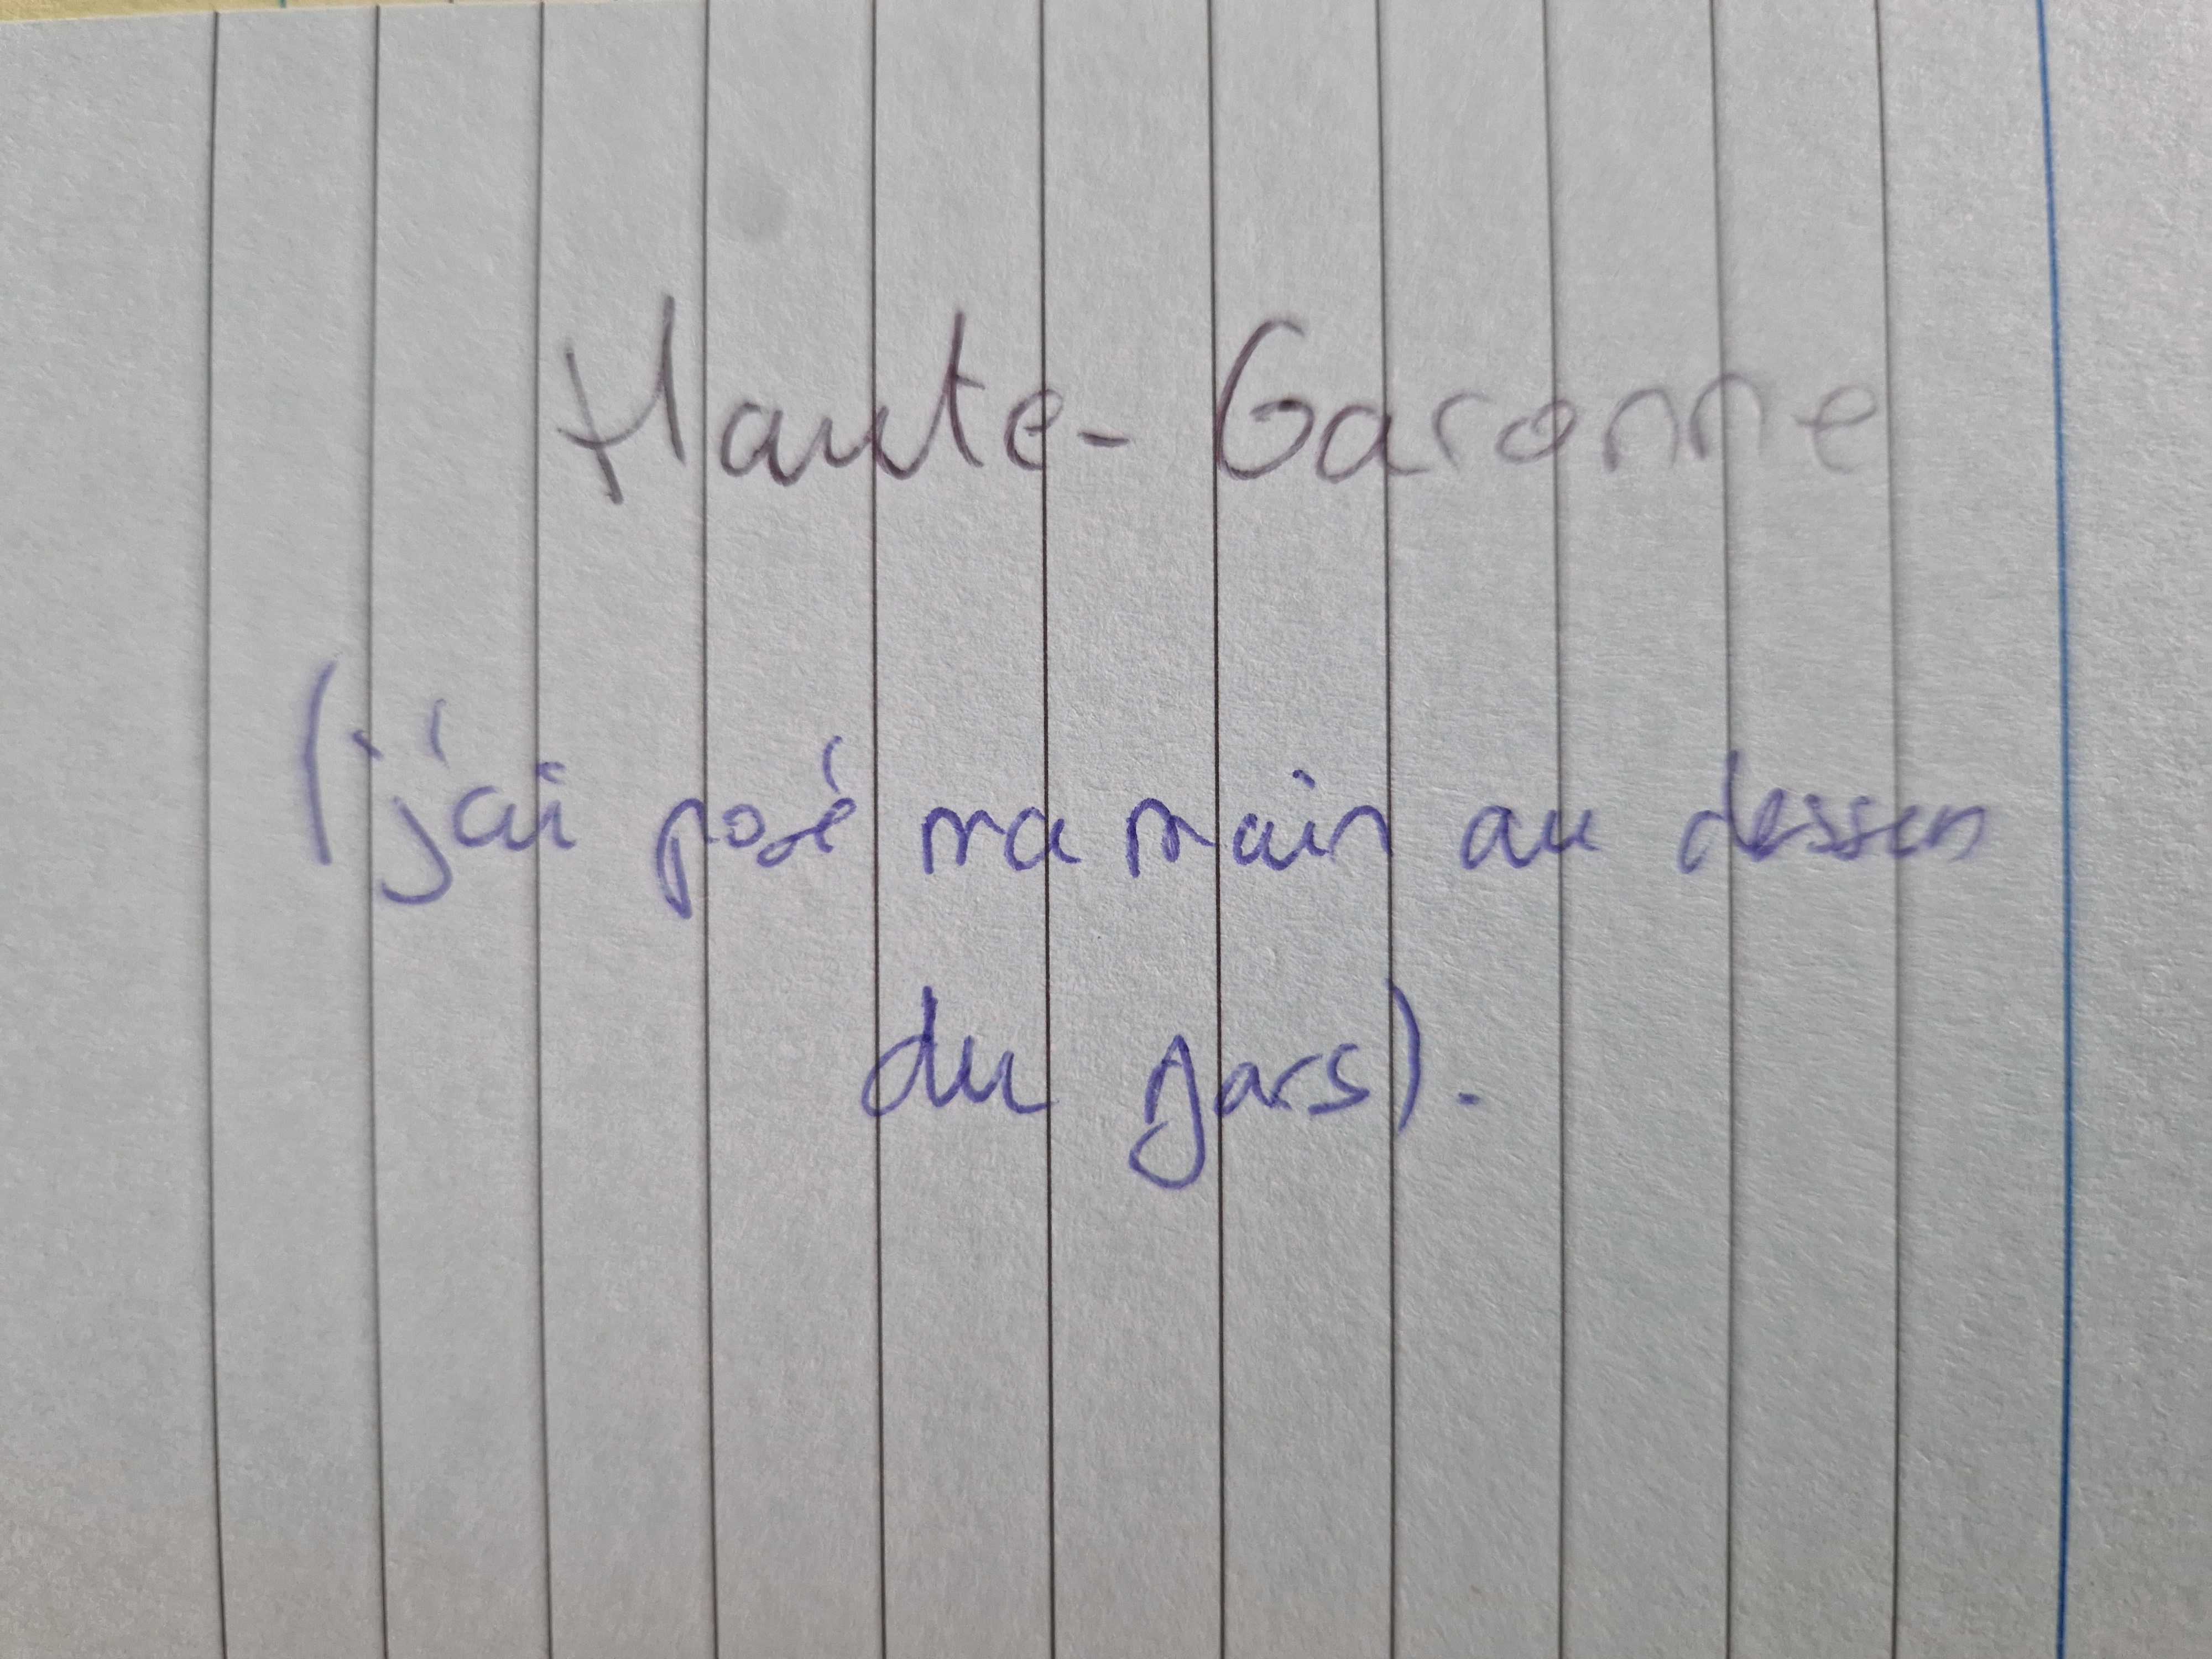 Haute-Garonne
(j'ai posé ma main au dessus
du gars).